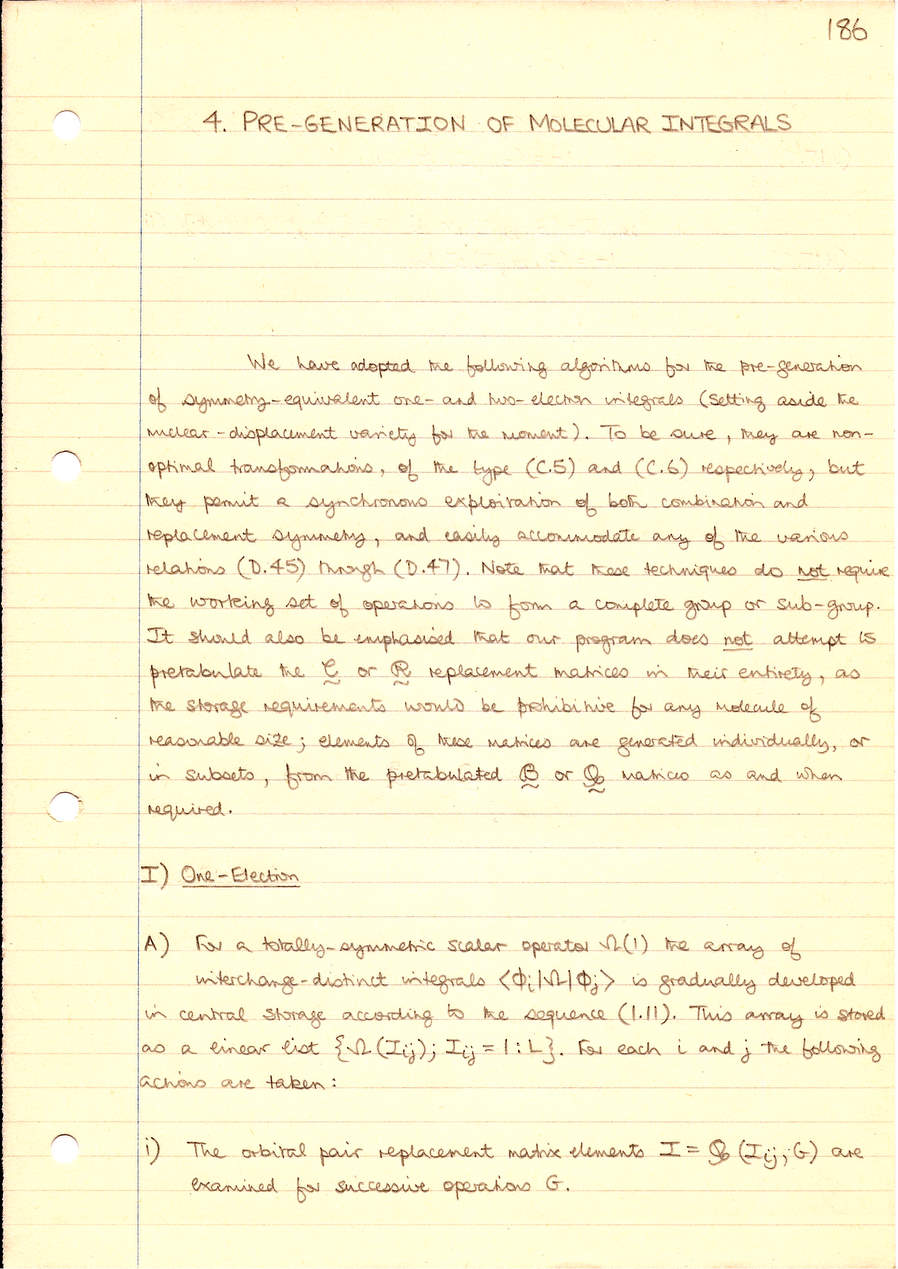 186
4. PRE-GENERATION OF MOLECULAR INTEGRALS
We have adopted the following algorithms for the pre-generation
of symmetry-equivalent one- and two-electron integrals (setting aside the
nuclear-displacement variety for the moment). To be sure, they are non-
optimal transformations, of the type (C.5) and (C.6) respectively, but
they permit a synchronous exploitation of both combination and
replacement symmetry, and easily accommodate any of the various
relations (D.45) through (D.47). Note that these techniques do not require
the working set of operations to form a complete group or sub-group.
It should also be emphasised that our program does not attempt to
pretabulate the C or R replacement matrices in their entirety, as
the storage requirements would be prohibitive for any molecule of
reasonable size; elements of these matrices are generated individually, or
in subsets, from the pretabulated B or Q matrices as and when
required.
I) One-Electron
A) For a totally-symmetric scalar operator Ω(1) the array of
interchange-distinct integrals <ϕi|Ω|ϕj> is gradually developed
in central storage according to the sequence (1.11). This array is stored
as a linear list {Ω(Iij); Iij = 1:L}. For each i and j the following
actions are taken:
i) The orbital pair replacement matrix elements I = Q(Iij, G) are
examined for successive operations G.